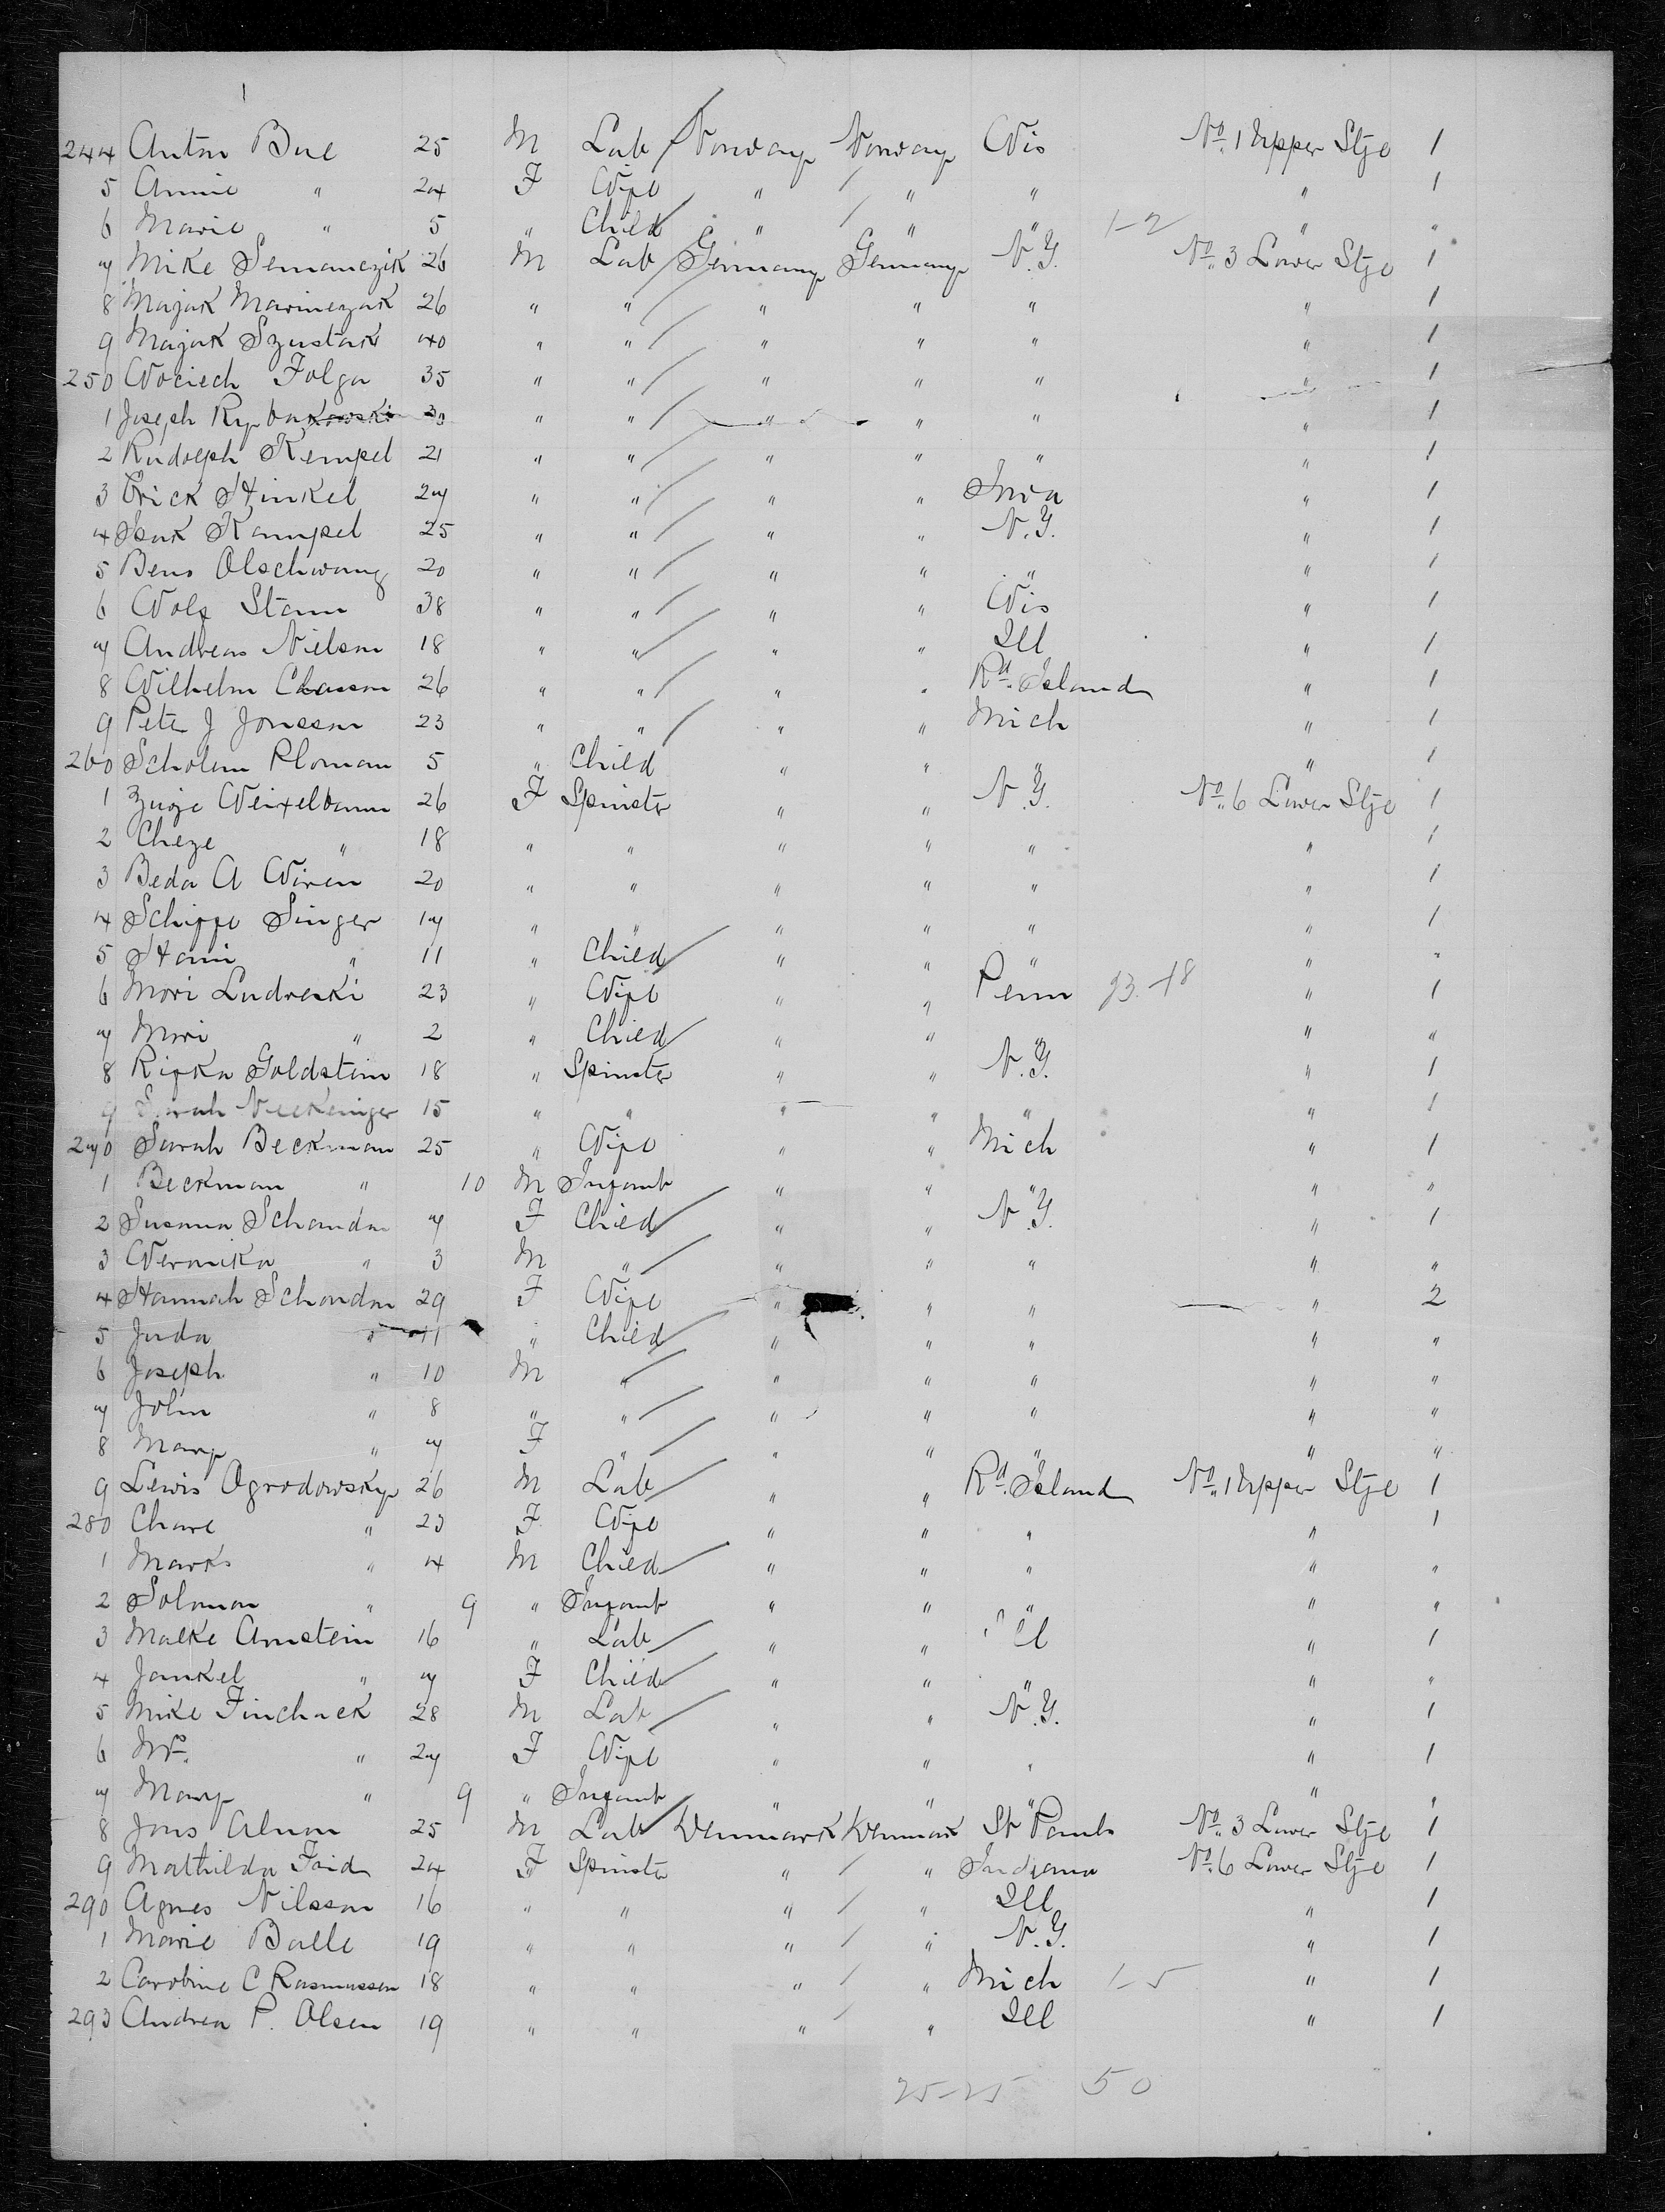 244 Anton Bue 25 M Lab Norway Norway Wis No. 1 Upper Stge 1
5 Annie " 24 F Wife " " " " 1
6 Marie " 5 " Child " " " 1-2 " "
7 Mike Semanczik 26 M Lab Germany Germany N.Y. No. 3 Lower Stge 1
8 Majak Marinczak 26 " " " " " " 1
9 Majak Szustak 40 " " " " " " 1
250 Wociech Folga 35 " " " " " " 1
1 Joseph Rybakowski 30 " " " " " " 1
2 Rudolph Kempel 21 " " " " " " 1
3 Erick Hinkel 27 " " " " Iowa " 1
4 Isak Kampel 25 " " " " N.Y. " 1
5 Bens Olschwang 20 " " " " " " 1
6 Wolf Stam 38 " " " " Wis " 1
7 Andreas Nielson 18 " " " " Ill " 1
8 Wilhelm Clason 26 " " " " Rd. Island " 1
9 Peter J Jonsson 23 " " " " Mich " 1
260 Scholem Ploman 5 " Child " " " " 1
1 Zuoje Weixelbaum 26 F Spinster " " N.Y. No. 6 Lower Stge 1
2 Cheze " 18 " " " " " " 1
3 Beda A Wiren 20 " " " " " " 1
4 Schiffe Singer 17 " " " " " " 1
5 Hani " 11 " Child " " " " "
6 Mori Ludreski 23 " Wife " " Penn 13-18 " 1
7 Miri " 2 " Child " " " " "
8 Rifka Goldstein 18 " Spinster " " N.Y. " 1
9 Sarah Neckeniger 15 " " " " " " 1
270 Sarah Beckman 25 " Wife " " Mich " 1
1 Beckman " 10 M Infant " " " " "
2 Susana Schandn 7 F Child " " N.Y. " 1
3 Weronika " 3 M " " " " " "
4 Hannah Schondn 29 F Wife " " " " 2
5 Juda " 11 " Child " " " " "
6 Joseph " 10 M " " " " " "
7 John " 8 " " " " " " "
8 Mary " 7 F " " " " " "
9 Lewis Ogrodowsky 26 M Lab " " Rd. Island No. 1 Upper Stge 1
280 Chare " 23 F Wife " " " " 1
1 Marks " 4 M Child " " " " "
2 Solomon " 9 " Infant " " " " "
3 Malke Arnstein 16 " Lab " " Ill " 1
4 Jankel " 7 F Child " " " " "
5 Mike Finchack 28 M Lab " " N.Y. " 1
6 Mrs. " 27 F Wife " " " " 1
7 Mary " 9 " Infant " " " " "
8 Jons Alnon 25 M Lab Denmark Denmark St Pauls No. 3 Lower Stge 1
9 Mathilda Frid 24 F Spinster " " Indiana No. 6 Lower Stge 1
290 Agnes Nilsson 16 " " " " Ill " 1
1 Marie Balle 19 " " " " N.Y. " 1
2 Caroline C Rasmussen 18 " " " " Mich 1-5 " 1
293 Andrea P. Olsen 19 " " " " Ill " 1
25-25 50